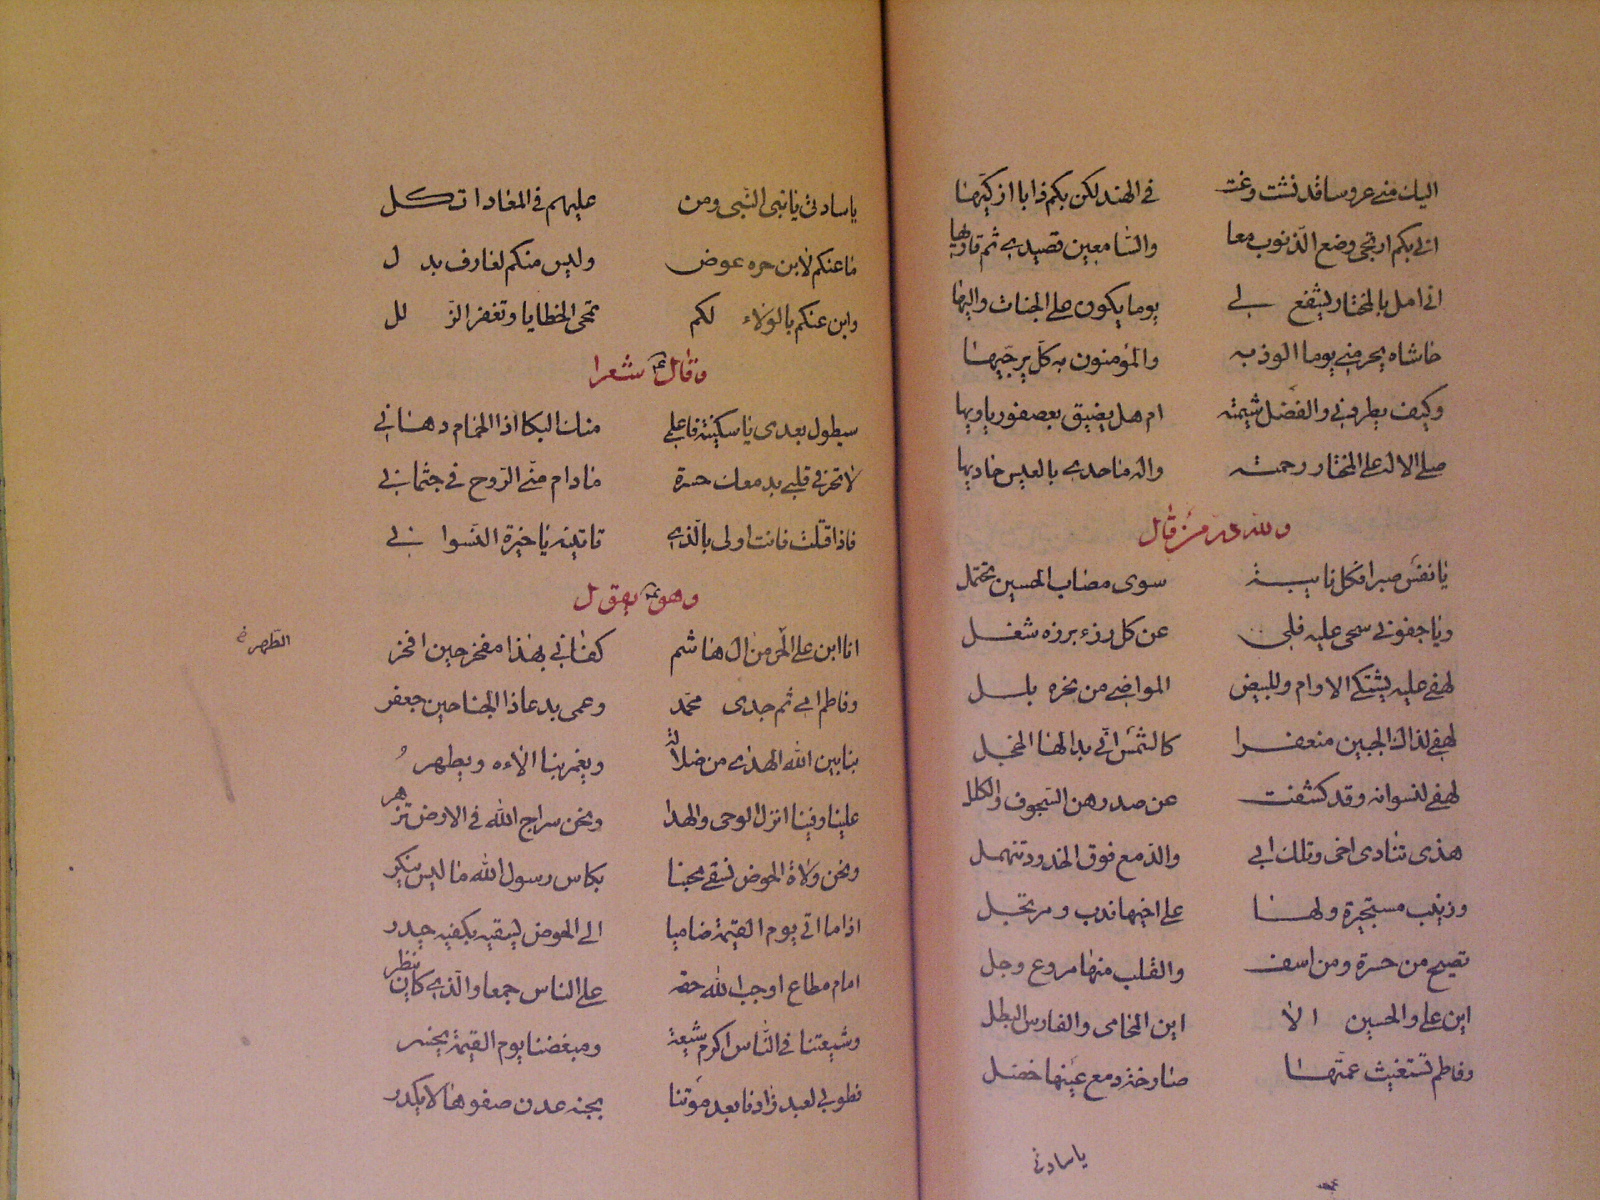 اليك مني عروسا قد نشت وغت في الهند لكن بكم
اني بكم ارتجى وضع الذنوب معا والسامعين قصيدي ثم قاريها
اني امل بالمختار يشفع لي يوما يكون على الجنات واليها
حاشاه يحرمني يوما الوذ به والمؤمنون به كل يرجيها
وكيف يطردني والفضل شيمته ام هل يضيق بعصفور ياويها
صلى الاله على المختار رحمته واله ما حدى بالعيس حاديها
ولله در من قال
يا نفس صبرا فكل نايبة سوى مصاب الحسين تحتمل
ويا جفوني سحى عليه فلي عن كل رزء برزه شغل
لهفي عليه يشتكي الاوام وللبيض المواضي من نحره بلل
لهفي لذاك الجبين منعفرا كالشمس
لهفي لنسوانه وقد كشفت عن صدرهن السجوف والكلل
هذى تنادى اخى وتلك ابي والدمع فوق الخدود تنهمل
وزينب مستجيرة ولها على اخيها ندب ومرتجل
تصيح من حسرة ومن اسف والقلب منها مروع وجل
اين علي والحسين الا اين المحامى والفارس البطل
وفاطم تستغيث عمتها صارخة دمع عينها خضل
يا سادتي
يا سادتي يا بنى النبي ومن عليهم في المعاد اتكل
ما عنكم لابن حره عوض وليس منكم لعارف بدل
وابن عنكم بالولاء لكم تمحى الخطايا وتغفر الزلل
وقال ع شعرا
سيطول بعدى يا سكينة فاعلمي منك البكا اذا الحمام دهاني
لا تحرقي قلبي بدمعك حسرة ما دام مني الروح في جثماني
فاذا قتلت فانت اولى بالذي تاتينه يا خيرة النسواني
وهو ع يقول
انا ابن علي الحر من ال هاشم كفاني بهذا مفخر حين افخر
الطهر خ
وفاطم امي ثم جدى محمد وعمى يدعا ذا الجناحين جعفر
بنا بين الله الهدى من ضلالة ويغمر بنا الاءه ويطهر
علينا وفينا انزل الوحى والهدا ونحن سراج الله في الارض تزهر
ونحن ولاة الحوض نسقي محبنا بكاس رسول الله ما ليس ينكر
اذا ما اتى يوم القيمة ضاميا الى الحوض يسقيه بكفيه حيدر
امام مطاع اوجب الله حقه على الناس جمعا والذي كان ينظر
وشيعتنا في الناس اكرم شيعة ومبغضنا يوم القيمة يخسر
فطوبى لعبد زارنا بعد موتنا بجنه عدن صفوها لا يكدر